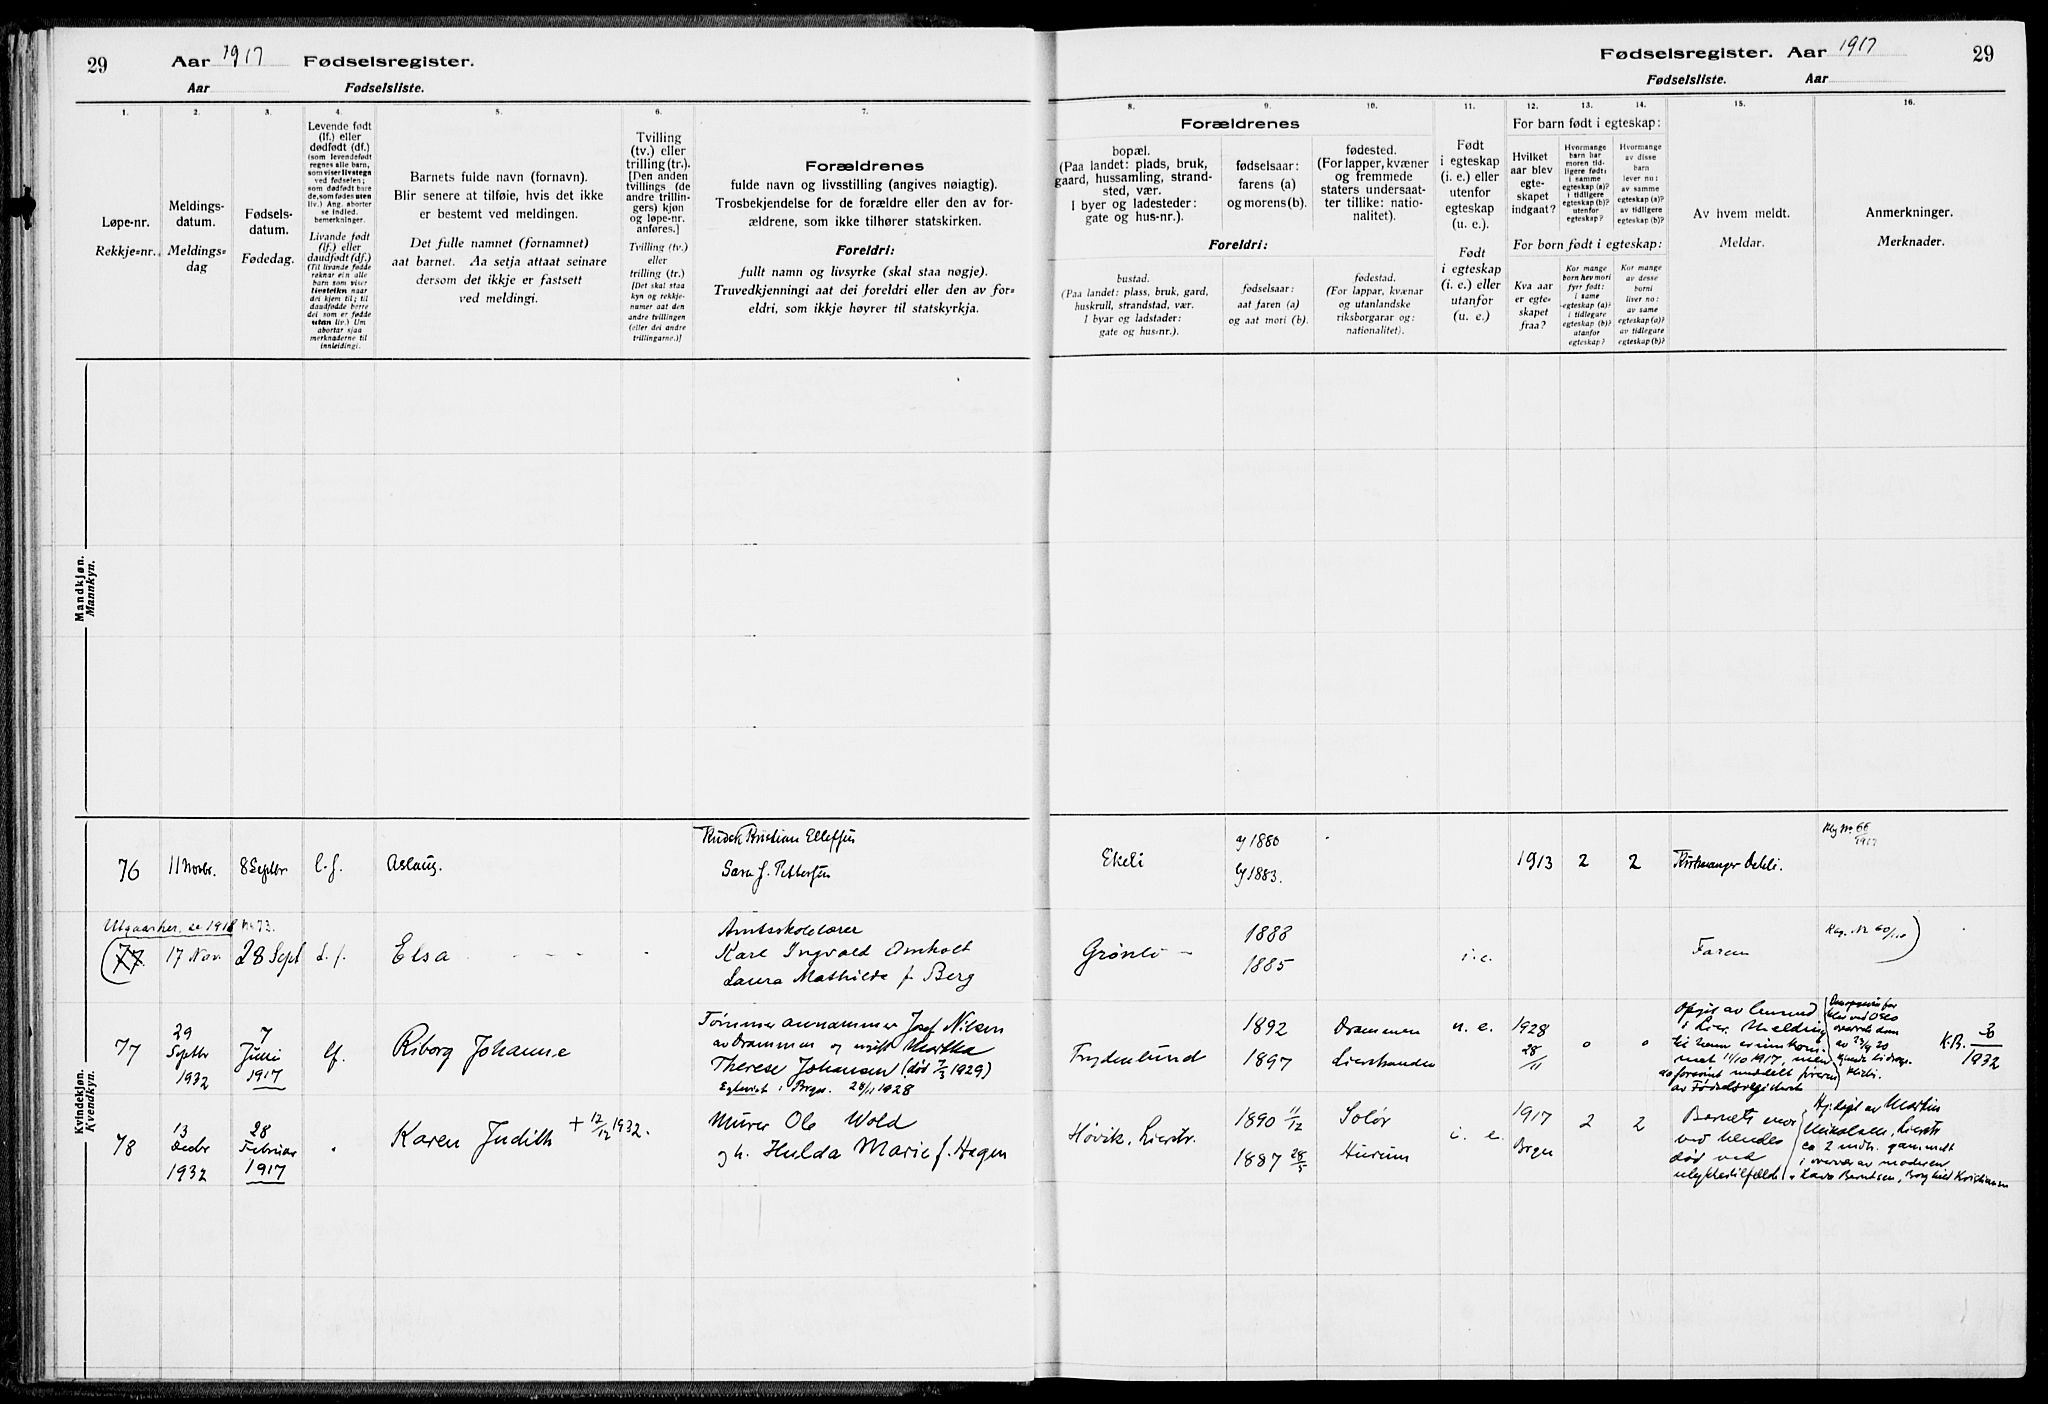 29
Aar 1917
Fødselsregister.
Aar
Fødselsliste.
Fødselsregister. Aar 1917
29
Fødselsliste.
Aar
1.
2.
3.
4.
5.
6.
7.
8.
9.
10.
11.
12.
13.
14.
15.
16.
Løpe-nr.
Rekkje=nr.
Meldings-
datum.
Meldings=
dag
Fødsels-
datum.
Fødedag.
Levende født
(lf.) eller
dødfødt (df.)
(som levendefødt
regnes alle barn,
som viser livstegn
ved fødselen;
som dødfødt bare
de, som fødes uten
liv.) Ang. aborter
se indled.
bemerkninger.
Livande født
(lf.) eller
daudfødt (df.)
(Til livande fødde
reknar ein alle
barn som viser
livsteikn naar
dei kjem til; til
daudfødde berre
dei som er fødde
utan liv.) Um
abortar sjaa
merknaderne til
innleidingi.
Barnets fulde navn (fornavn).
Blir senere at tilføie, hvis det ikke
er bestemt ved meldingen.
Det fulle namnet (fornamnet)
aat barnet. Aa setja attaat seinare
dersom det ikkje er fastsett
ved meldingi.
Tvilling
(tv.) eller
trilling (tr.).
[Den anden
tvillings (de
andre trillin-
gers) kjøn
og løpe-nr.
anføres.]
Tvilling (tv.)
eller
trilling (tr.)
[Det skal staa
kyn og rekkje-
numer aat den
andre tvillingen
(eller dei andre
trillingarne.)]
Forældrenes
fulde navn og livsstilling (angives nøiagtig).
Trosbekjendelse for de forældre eller den av for-
ældrene, som ikke tilhører statskirken.
Foreldri:
fullt namn og livsyrke (skal staa nøgje).
Truvedkjenningi aat dei foreldri eller den av for=
eldri, som ikkje høyrer til statskyrkja.
Forældrenes
bopæl.
(Paa landet: plads, bruk,
gaard, hussamling, strand-
sted, vær.
I byer og ladesteder:
gate og hus-nr.).
fødselsaar:
farens (a)
og morens (b).
fødested.
(For lapper, kvæner
og fremmede
staters undersaat-
ter tillike: natio-
nalitet).
Foreldri:
bustad.
(Paa landet: plass, bruk, gard,
huskrull, strandstad, vær.
I byar og ladstader:
gate og hus=nr.).
fødselsaar:
aat faren (a)
og aat mori (b).
fødestad.
(For lappar, kvænar
og utanlandske
riksborgarar og:
nationalitet).
Født
i egteskap
(i. e.) eller
utenfor
egteskap
(u. e.).
Født
i egteskap
(i. e.) eller
utanfor
(u. e.)
For barn født i egteskap:
Hvilket
aar blev
egte-
skapet
indgaat?
Hvormange
barn har
moren tid-
ligere født:
i samme
egteskap (a)?
i tidligere
egteskap (b)?
utenfor
egteskap?
Hvormange
av disse
barn
lever nu:
av samme
egteskap (a)?
av tidligere
egteskap (b)?
For born født i egteskap:
Kva aar
er egte-
skapet
fraa?
Kor mange
born hev mori
fyrr født:
i same
egteskap (a)?
i tidlegare
egteskap (b)?
utanfor
egteskap?
Kor mange
av desse
borni
liver no:
av same
egteskap (a)?
av tidlegare
egteskap (b)?
Av hvem meldt.
Meldar.
Anmerkninger.
Merknader.
Mandkjøn.
Mannkyn.
Kvindekjøn.
Kvendkyn.
76 11 Novbr. 8 Septbr l.f. Aslaug.
Kristian Ellefsen
Sara f. Pettersen
Ekeli
1880
1883.
1913 2 2
66
1917
Utgaar 1918 No 73.
(77. 17 Nov. 28 Sept l.f. Elsa
Amtsskolelærer
Karl Ingvald Omholt
Laura Mathilde f. Berg
Grønlo
1888
1885
i. e. Faren
Nr 60
77
29
Septbr
1932
7
Juni
1917
lf. Riborg Johanne
Tømmerannammer Josef Nilsen
av Drammen og Martha
Therese Johansen (død 7/3 1929)
28/11 1928
Frydenlund
1892
1897
Drammen
Lierstranden
u. e.
1928
28/11
0 0
i Lier. Melding
11/10 1917, men
av Fødselsregisteret
K.B. 30
1932
78
13
Decbr
1932
28
Februar
1917
Karen Judith + 12/12 1932.
Murer Ole Wold
og h. Hulda Marie f. Hagen
Høvik, Lierstr.
1890 11/12
1887 28/5
Solør
Hurum
i. e.
1917
2 2
Barnets mor
ved hendes
død ved
ulykkestilfælde
Hj.døpt av Martin
Mikalsen, Lierstr
ca 2 mdr. gammelt
i overvær av moderen
Bentsen, Borghild Kristiansen